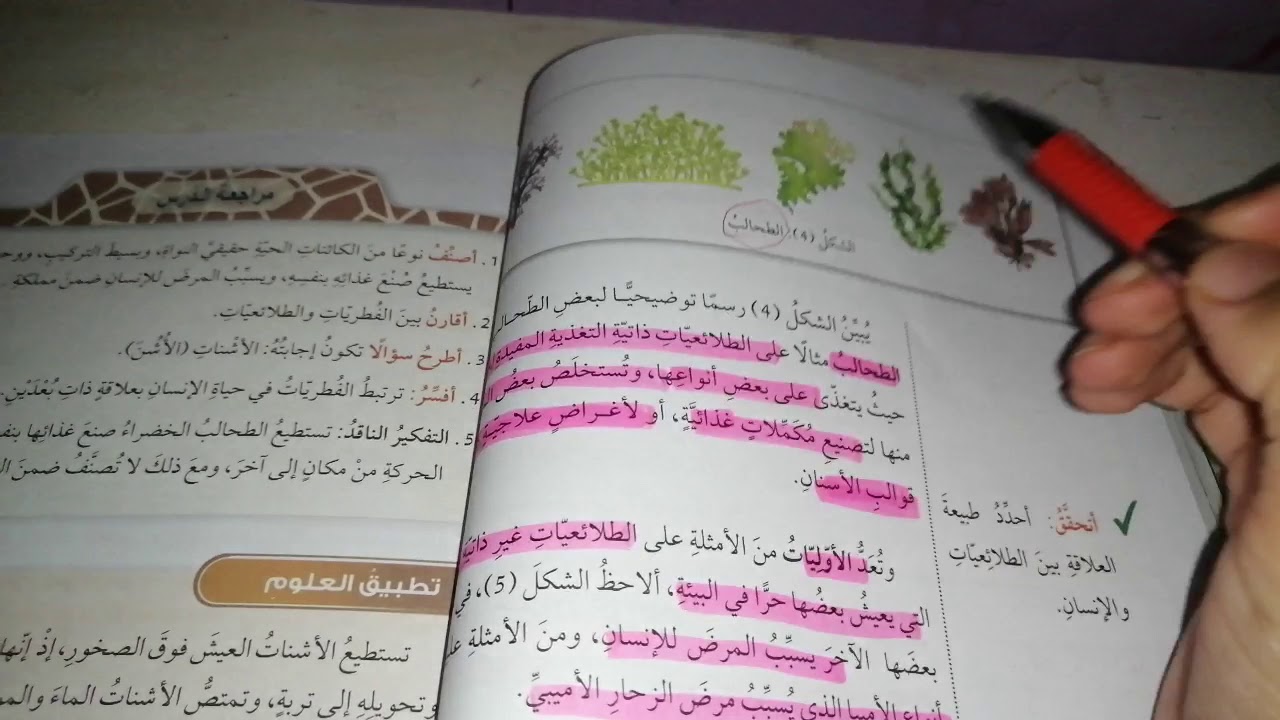 الشكلُ (4): الطحالبُ
يُبيِّنُ الشكلُ (4) رسمًا توضيحيًّا لبعضِ الطّحالـ
الطحالبُ مثالًا على الطلائعيّاتِ ذاتيّةِ التغذيةِ المفيدة
حيثُ يتغذّى على بعضِ أنواعِها، وتُستخلَصُ بعضُ
منها لتصنيعِ مُكمِّلاتٍ غذائيَّةٍ، أو لأغراضٍ علاجيّة
قوالبِ الأسنانِ.
أتحقَّقُ: أحدِّدُ طبيعةَ
العلاقةِ بينَ الطلائعيّاتِ
والإنسانِ.
وتُعَدُّ الأوّليّاتُ منَ الأمثلةِ على الطلائعيّاتِ غيرِ ذاتيّة
التي يعيشُ بعضُها حرًّا في البيئةِ، ألاحظُ الشكلَ (5)، في
بعضَها الآخرَ يسبِّبُ المرضَ للإنسانِ، ومنَ الأمثلةِ
أنواعِ الأميبا الذي يُسبِّبُ مرضَ الزحارِ الأميبيِّ.
مراجعةُ الدرسِ
1. أصنِّفُ نوعًا منَ الكائناتِ الحيّةِ حقيقيَّ النواةِ، وبسيطَ التركيبِ، ووحـ
يستطيعُ صُنْعَ غذائِهِ بنفسِهِ، ويسبِّبُ المرضَ للإنسانِ ضمنَ مملكة
2. أقارنُ بينَ الفُطريّاتِ والطلائعيّاتِ.
3. أطرحُ سؤالًا تكونُ إجابتُهُ: الأشْناتِ (الأُشْنَ).
4. أفسِّرُ: ترتبطُ الفُطريّاتُ في حياةِ الإنسانِ بعلاقةٍ ذاتِ بُعْدَيْنِ.
5. التفكيرُ الناقدُ: تستطيعُ الطحالبُ الخضراءُ صنعَ غذائِها بنفـ
الحركةِ مِنْ مكانٍ إلى آخرَ، ومعَ ذلكَ لا تُصنَّفُ ضمنَ
تطبيقُ العلوم
تستطيعُ الأشناتُ العيشَ فوقَ الصخورِ، إذْ إنّها
وتحويلِهِ إلى تربةٍ، وتمتصُّ الأشناتُ الماءَ